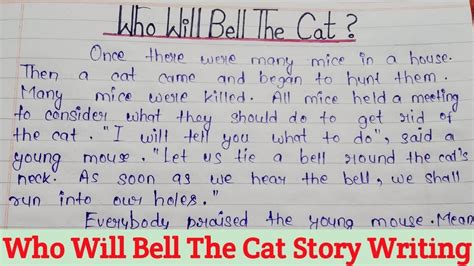 Who Will Bell The Cat ?
Once there were many mice in a house.
Then a cat came and began to hunt them.
Many mice were killed. All mice held a meeting
to consider what they should do to get rid of
the cat. "I will tell you what to do", said a
young mouse. "Let us tie a bell around the cat's
neck. As soon as we hear the bell, we shall
run into our holes."
Everybody praised the young mouse. Mean
Who Will Bell The Cat Story Writing